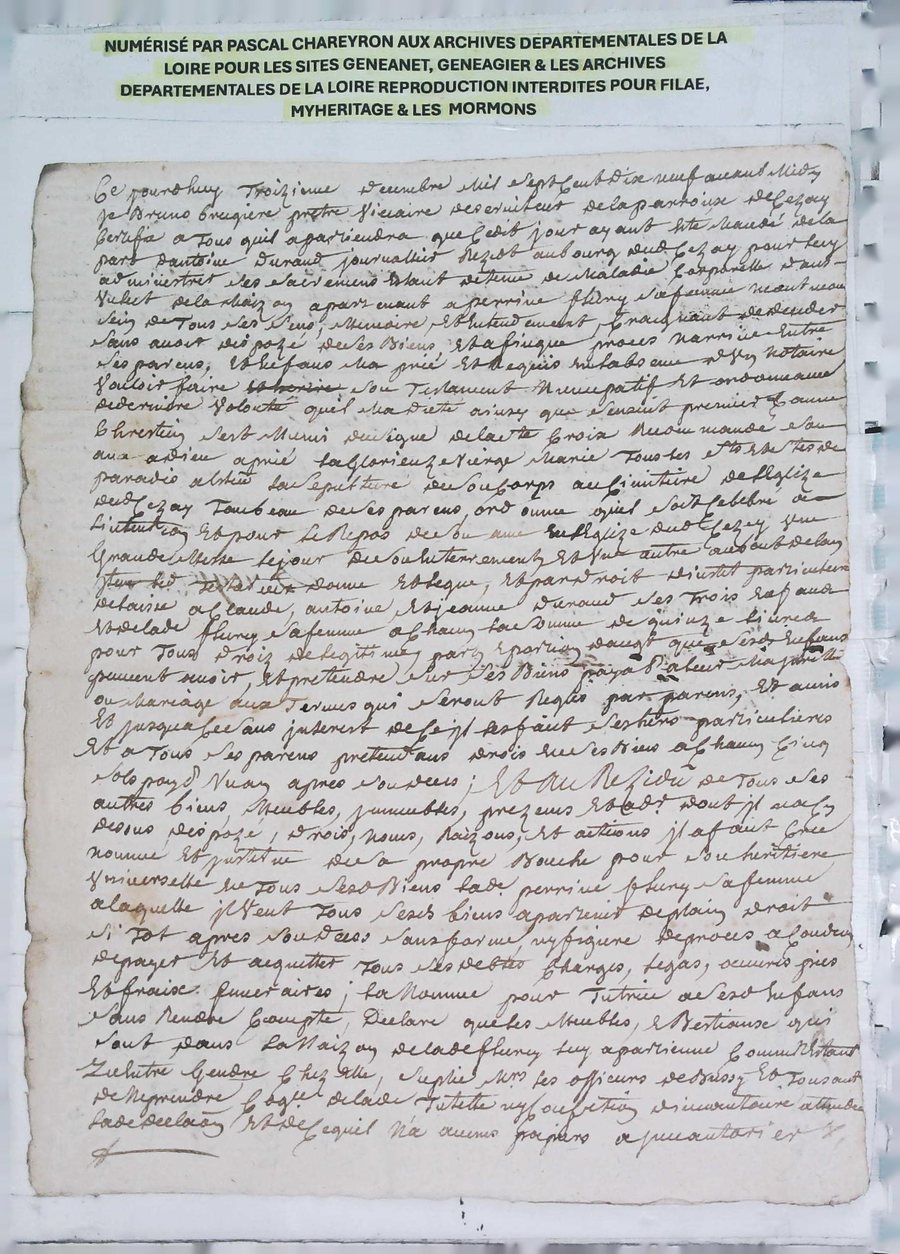 NUMÉRISÉ PAR PASCAL CHAREYRON AUX ARCHIVES DEPARTEMENTALES DE LA
LOIRE POUR LES SITES GENEANET, GENEAGIER & LES ARCHIVES
DEPARTEMENTALES DE LA LOIRE REPRODUCTION INTERDITES POUR FILAE,
MYHERITAGE & LES MORMONS
Ce jourdhuy Troizieme decembre Mil Sept Cent Dix neuf avant Midy
Je Bruno brugiere prêtre Vicaire deserviteur de la parroisse de Cezay
Certifie a Tous quil apartiendra que Cedit jour ayant Esté Mandé de la
part dantoine durand journallier Rezidt au bourg dud Cezay pour luy
administrer Ses Sacremens Estant detenu de Maladie Corporelle dans
de la Maizon apartenant a perrine fleury Sa femme neantmoin
Sein de Tous Ses Sens, Memoire, Et Entendement, Craignant de deceder
Sans avoir dispozé de Ses Biens Et afin que proces narrive Entre
Ses parens, Et Enfans Ma prié Et Requis En labsence dun Notaire
Vouloir faire Son Testament Nuncupatif Et ordonnance
de derniere Volonté quil Ma dicté ainsy que Sensuit premier Comme
Chrestien Sest Muni du Signe de la Ste Croix Recommandé Son
ame a dieu a prié la Glorieuze Vierge Marie Tous les Sts Et Stes de
paradis la Sepulture de Son Corps au Cimitiere de lEglize
dud Cezay Tombeau de Ses parens, ordonne quil Soit Celebré a
Lintention Et pour le Repos de Son ame En lEglize dud Cezay Une
Grande Messe le jour de Son Enterrement, Et Une autre au bout de lan
donne Et legue, Et par droit dinstit particuliere
delaisse a Claude, antoine, Et jeanne durand Ses Trois Enfans
Et de lade fleury Sa femme a Chacun la Somme de quinze livres
pour Tous droiz de legitime, part Et portion daugt que Sesd Enfans
peuvent avoir, Et pretendre Sur Ses Biens Majorité
ou Mariage aux Termes qui Seront Reglés par parens, Et amis
Et jusqua Ce Sans interest de Ce jl les fait Ses hers particulieres
Et a Tous Ses parens pretendans drois En Ses Biens a Chacun Cinq
Sols Un an apres Son deces; Et Au Rezidu de Tous Ses
autres biens, Meubles, jmmeubles, prezens Et dont jl na Cy
dessus dispozé, drois, Noms, Raizons, Et actions jl a fait Cree
nomme Et jnstitue de Sa propre Bouche pour Son heritiere
Universelle En Tous Sesd Biens lade perrine fleury Sa femme
a laquelle jl Veut Tous Sesds biens apartenir de plain droit
Si Tot apres Son deces Sans forme, ny figure de proces a
de payer Et acquitter Tous Ses debtes Charges, legas, œuvres pies
Et fraix funeraires; la Nomme pour Tutrice a Sesd Enfans
Sans Rendre Compte, Declare que les Meubles, Et Bestiaux qui
Sont dans la Maizon de lade fleury luy apartienne Comme Estant
Gendre Chez Elle, Suplie Mrs les officiers de Bussy
de Reprendre de lade Tutelle ny Confection dinvantaire attendu
lade declaon Et de Cequel Na aucuns papiers a jnvantorier